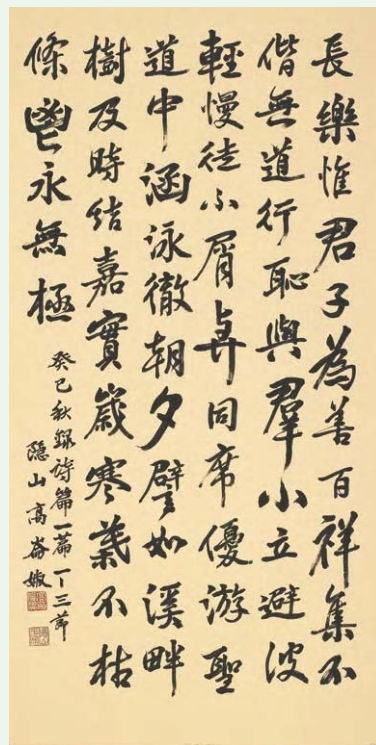 長樂惟君子為善百祥集不
偕無道行恥與羣小立避彼
輕慢徒不屑與同席優游聖
道中涵泳徹朝夕譬如溪畔
樹及時結嘉實歲寒葉不枯
條鬯永無極
癸巳秋錄詩篇一篇一-三節
隱山高崙